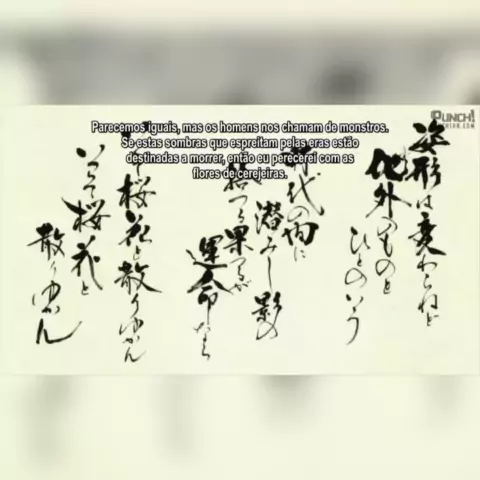 PUNCH!
Parecemos iguais, mas os homens nos chamam de monstros.
Se estas sombras que espreitam pelas eras estão
destinadas a morrer, então eu perecerei com as
flores de cerejeiras.
姿形は変わらねど
化外のものと
ひとのいう
代の間に
潜みし影の
つる果つるが
運命なら
桜花と散りゆかん
いざ桜花と
散りゆかん